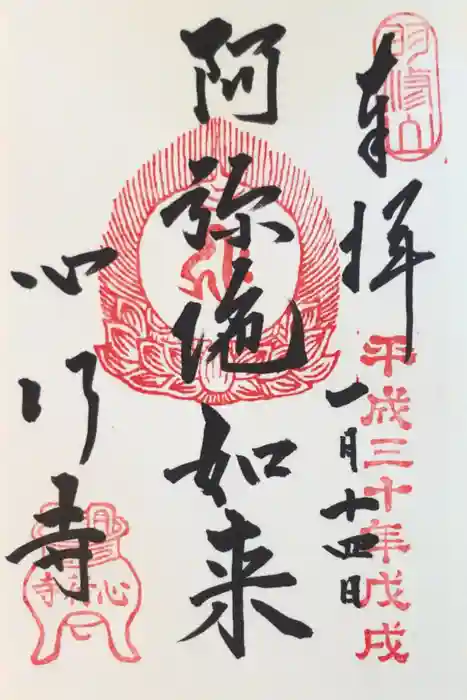 奉拝
平成三十年戊戌
一月十四日
阿弥陀如来
心行寺
心行寺